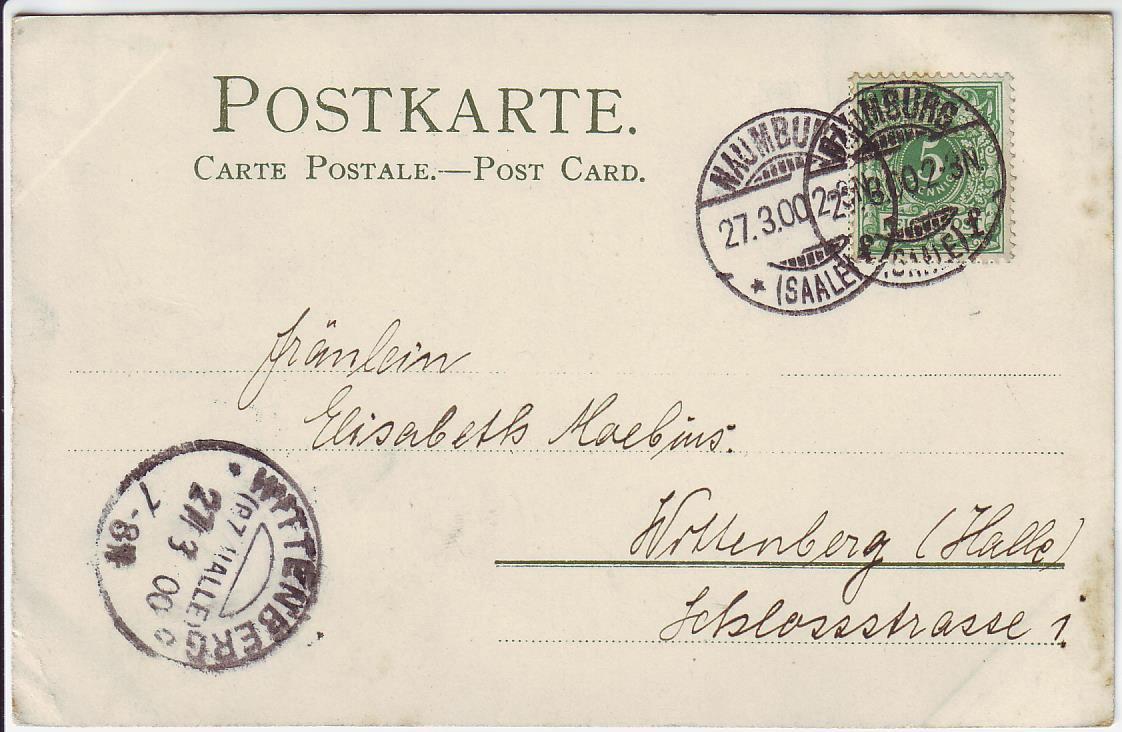 POSTKARTE.
CARTE POSTALE.—POST CARD.
NAUMBURG
27.3.00 2-3N.
* (SAALE) f
NAUMBURG
27.3.00.2-3N.
(SAALE) f
5
PFENNIG
Fräulein
Elisabeth Moebius.
Wittenberg (Halle)
Schlossstrasse 1.
* WITTENBERG c
(BZ. HALLE)
27 3 00
7-8N